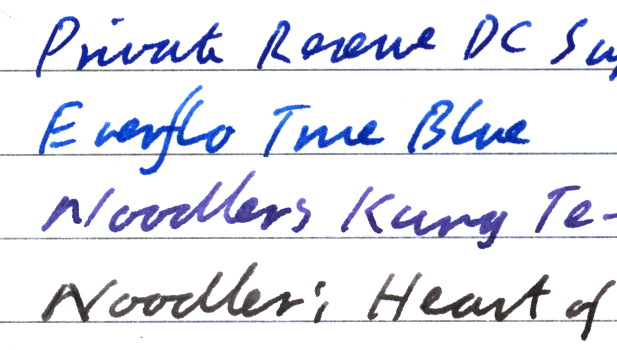 Private Reserve DC Su
Everflo True Blue
Noodlers Kung Te-
Noodler's Heart of